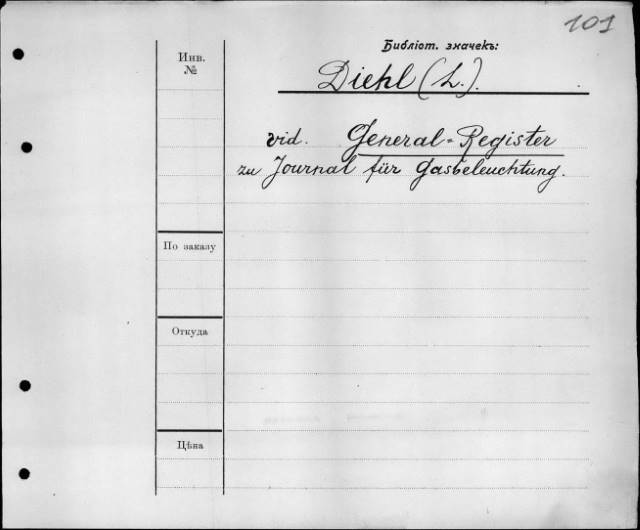 101
Библіот. значекъ:
Инв.
№
Diehl (L.).
vid. General-Register
zu Journal für Gasbeleuchtung.
По заказу
Откуда
Цѣна